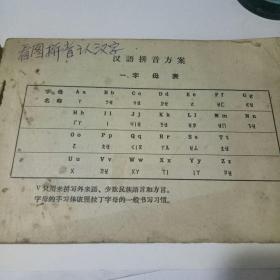 看图拼音认汉字
汉語拼音方案
一、字母表
字母 Aa Bb Cc Dd Ee Ff Gg
名称
Hh Ii Jj Kk Ll Mm Nn
Oo Pp Qq Rr Ss Tt
Uu Vv Ww Xx Yy Zz
V只用来拼写外来語、少数民族語言和方言。
字母的手写体依照拉丁字母的一般书写习惯。